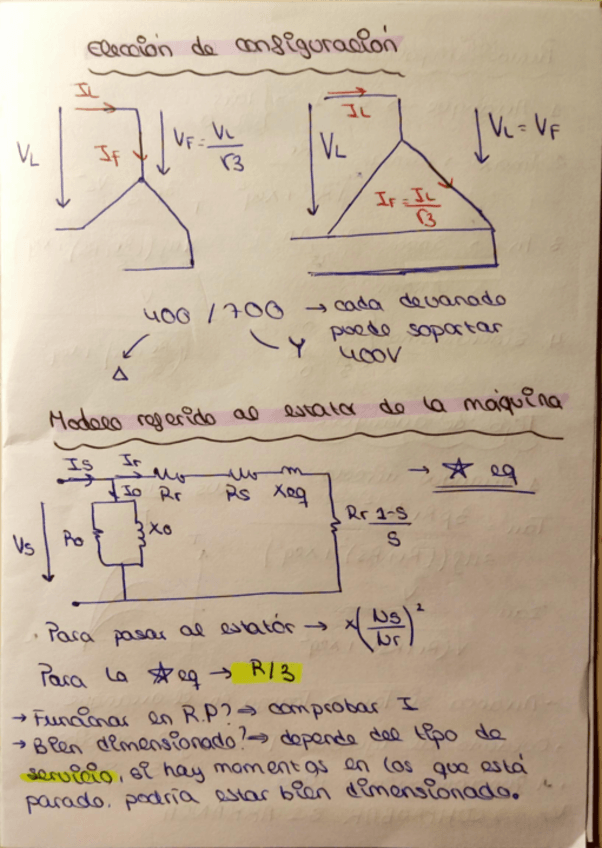 Elección de configuración
IL
VL
IF
VF = VL/√3
IL
VL
IF = IL/√3
VL = VF
400 / 700 → cada devanado
puede soportar
400V
Δ
Y
Modelo referido al estator de la máquina
Is
Ir
Io
Rr
Rs
Xeq
→ ☆ eq
Vs
Ro
Xo
Rr 1-s/s
. Para pasar al estatór → x(Ns/Nr)²
Para la ☆eq → R/3
→ Funcionar en R.P? ⇒ comprobar I
→ Bien dimensionado? ⇒ depende del tipo de
servicio, si hay momentos en los que está
parado. podría estar bien dimensionado.